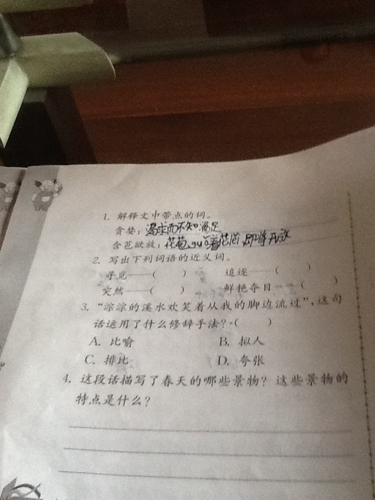 1. 解释文中带点的词。
贪婪：渴求而不知满足
含苞欲放：花苞 着花蕾 即将开放
2. 写出下列词语的近义词。
寻见——( ) 追逐——( )
突然——( ) 鲜艳夺目——( )
3. “淙淙的溪水欢笑着从我的脚边流过”，这句
话运用了什么修辞手法?( )
A. 比喻 B. 拟人
C. 排比 D. 夸张
4. 这段话描写了春天的哪些景物？这些景物的
特点是什么？